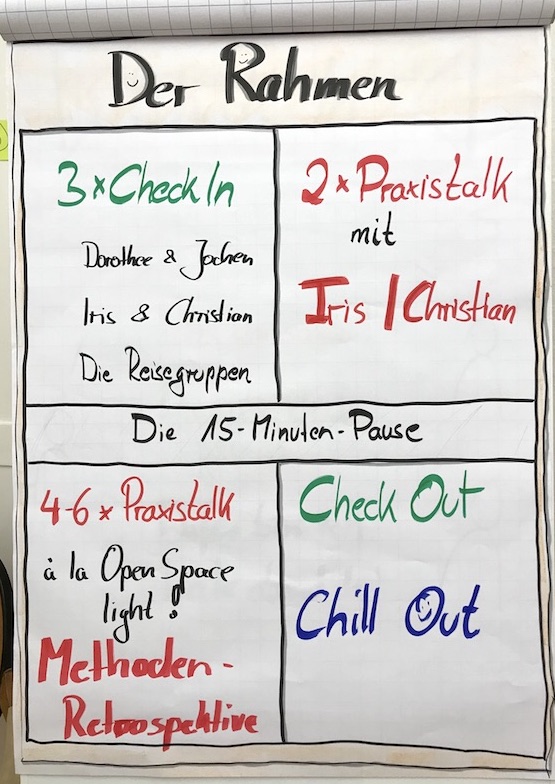 Der Rahmen
3 x Check In
Dorothee & Jochen
Iris & Christian
Die Reisegruppen
2 x Praxistalk
mit
Iris / Christian
Die 15-Minuten-Pause
4-6 x Praxistalk
à la Open Space
light!
Methoden-
Retrospektive
Check Out
Chill Out